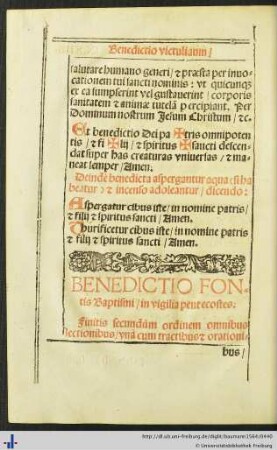 Benedictio victualium/
salutare humano generi/ & præsta per inuo
cationem tui sancti nominis: vt quicunque
er ea sumpserint vel gustauerint/ corporis
sanitatem & animæ tutelã percipiant. Per
Dominum nostrum Jesum Christum/ &c.
Et benedictio Dei pa✠tris omnipoten
tis/ & fi✠lij/ & spiritus ✠sancti descen
dat super has creaturas vniuersas/ & ma
neat semper/ Amen.
Deinde benedicta aspergantur aqua (si ha
beatur) & incenso adoleantur/ dicendo:
Aspergatur cibus iste/ in nomine patris/
& filij & spiritus sancti/ Amen.
Purificetur cibus iste/ in nomine patris
& filij & spiritus sancti/ Amen.
BENEDICTIO FON-
tis Baptismi/ in vigilia pentecostes.
Finitis secundum ordinem omnibus
lectionibus/ vnà cum tractibus & orationi-
bus/
http://dl.ub.uni-freiburg.de/diglit/baumann1564/0440
© Universitätsbibliothek Freiburg